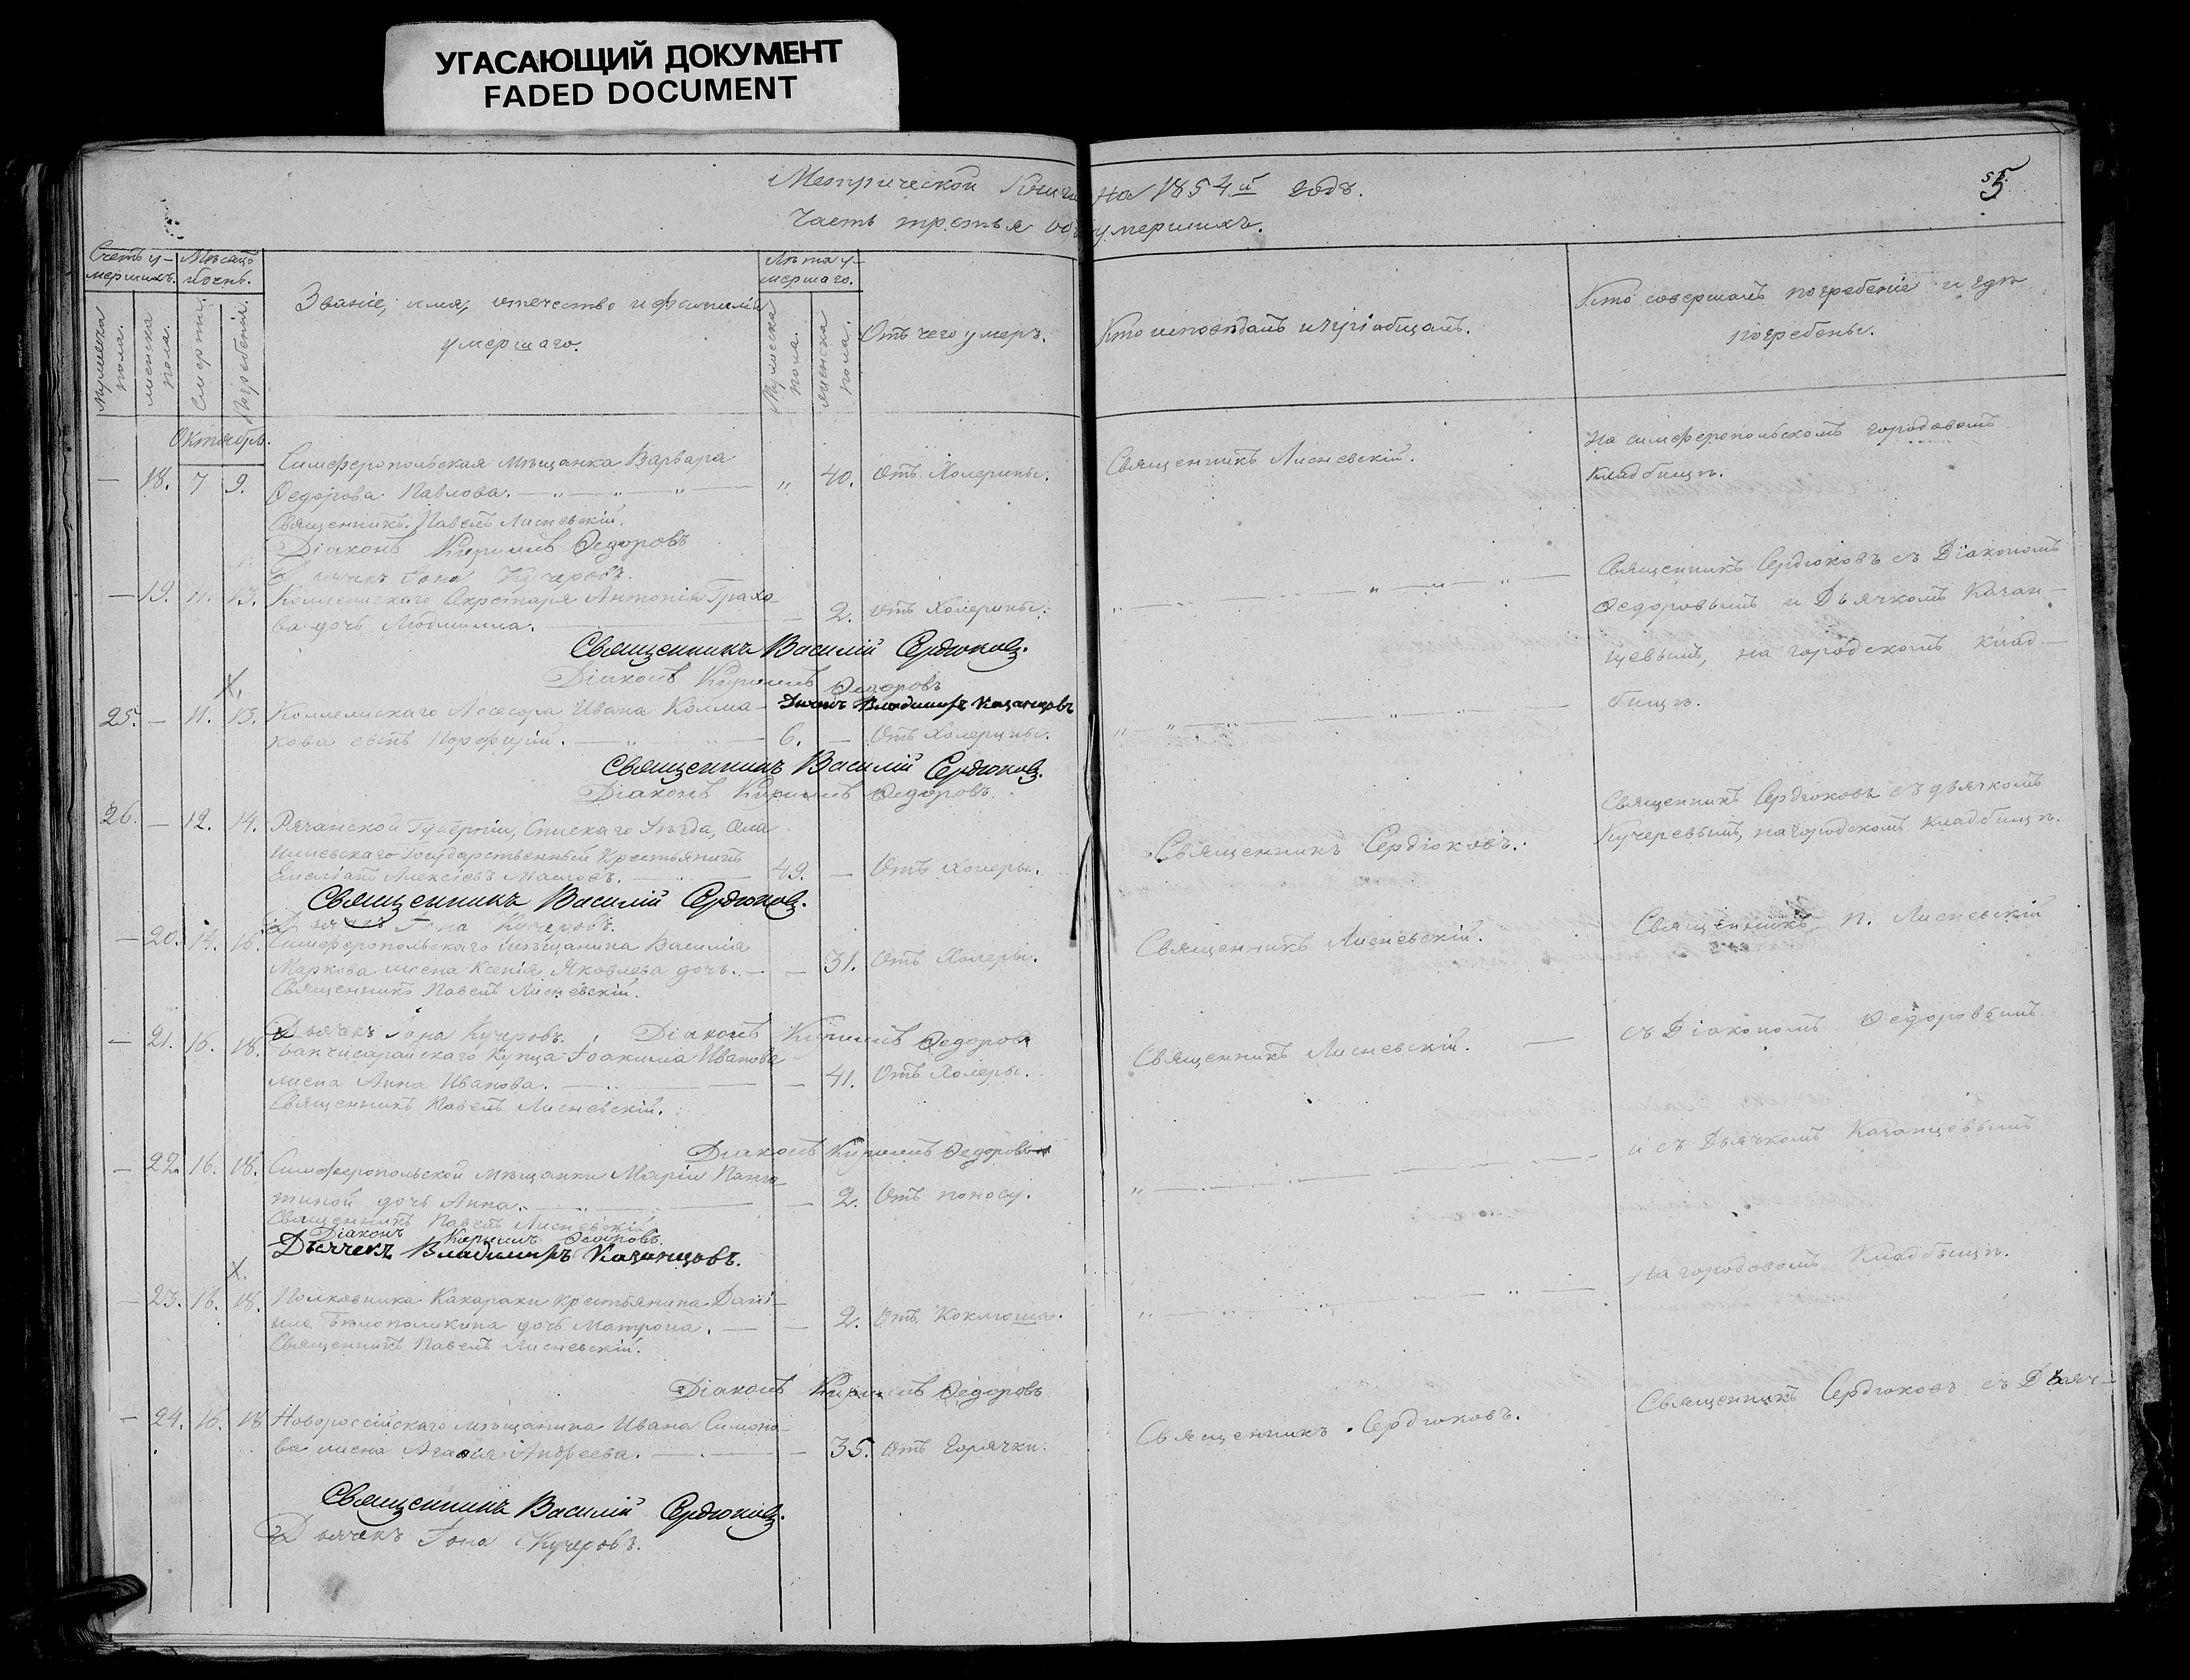 УГАСАЮЩИЙ ДОКУМЕНТ
FADED DOCUMENT
Метрической Книги на 1854й годъ.
5
Часть третья объ умершихъ.
Счетъ у-
мершихъ.
Мѣсяцъ
и день.
Званіе, имя, отечество и фамилія
умершаго.
Лѣта у-
мершаго.
Отъ чего умеръ.
Кто исповѣдалъ и пріобщалъ.
Кто совершалъ погребеніе и гдѣ
погребены.
Мужеска пола.
Женска пола.
Смерти.
Погребенія.
Мужеска пола.
Женска пола.
Октябрь.
— 18. 7 9. Симферопольская мѣщанка Варвара
Ѳедорова Павлова. „ 40. Отъ Холерины. Священникъ Лисневскій. На симферопольскомъ городовомъ
Кладбищѣ.
Священникъ Павелъ Лисневскій.
Діаконъ Кириллъ Ѳедоровъ
Дьячекъ Іона Кучеровъ.
— 19. 11. 13. Коллежскаго Секретаря Антонія Грахо-
ва дочь Людмилла. — 2. отъ Холерины.
Священникъ Сердюковъ съ Діакономъ
Ѳедоровымъ и Дьячкомъ Казан-
цевымъ, на городскомъ клад-
бищѣ.
Священникъ Василій Сердюковъ.
Діаконъ Кириллъ Ѳедоровъ
Дьячекъ Владимиръ Казанцовъ
X.
25. — 11. 13. Коллежскаго Ассесора Ивана Колма-
кова сынъ Порфирій. 6. — Отъ Холерины.
Священникъ Василій Сердюковъ.
Діаконъ Кириллъ Ѳедоровъ.
26. — 12. 14. Рязанской Губерніи, Спискаго Уѣзда,
Государственный Крестьянинъ
Емеліанъ Алексіевъ Масловъ. 49. — Отъ холеры. Священникъ Сердюковъ.
Священникъ Сердюковъ съ дьячкомъ
Кучеревымъ, на городскомъ кладбищѣ.
Священникъ Василій Сердюковъ.
Дьячекъ Іона Кучеровъ.
— 20. 14. 16. Симферопольскаго мѣщанина Василія
Маркова жена Ксенія Яковлева дочь. — 31. Отъ Холеры. Священникъ Лисневскій. Священникъ П. Лисневскій
Священникъ Павелъ Лисневскій.
Дьячекъ Іона Кучеровъ. Діаконъ Кириллъ Ѳедоровъ
— 21. 16. 18. Бакчисарайскаго Купца Іоакима Иванова
жена Анна Иванова. — 41. Отъ Холеры. Священникъ Лисневскій. съ Діакономъ Ѳедоровымъ
Священникъ Павелъ Лисневскій.
Діаконъ Кириллъ Ѳедоровъ
— 22. 16. 18. Симферопольской мѣщанки Маріи
дочь Анна. — 2. Отъ поносу. и съ Дьячкомъ Казанцевымъ
Священникъ Павелъ Лисневскій
Діаконъ Кириллъ Ѳедоровъ.
Дьячекъ Владимиръ Казанцовъ.
X.
— 23. 16. 18. Полковника Качараки крестьянина Дані-
ила дочь Матрона. — 2. Отъ Коклюша. На городовомъ Кладбищѣ.
Священникъ Павелъ Лисневскій.
Діаконъ Кириллъ Ѳедоровъ
— 24. 16. 18 Новороссійскаго мѣщанина Ивана Симоно-
ва жена Агаѳія Андреева. — 35. отъ Горячки. Священникъ Сердюковъ. Священникъ Сердюковъ съ Дьяч-
Священникъ Василій Сердюковъ.
Дьячекъ Іона Кучеровъ.